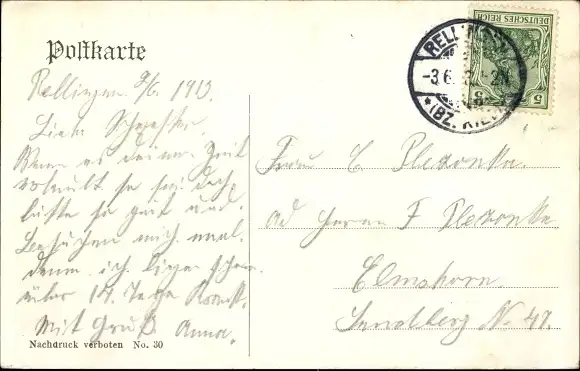 Postkarte
Rellingen 2/6. 1913.
Liebe Schwester.
Wenn es deine Zeit
erlaubt so sei doch
bitte so gut und
besuchen mich mal.
denn ich liege schon
über 14. Tage krank.
Mit Gruß Anna.
Nachdruck verboten No. 30
DEUTSCHES REICH
5 5
RELLINGEN
-3.6.
*(BZ. KIEL)
Frau C Plezonka.
ad Herrn F Plezonka
Elmshorn.
Sandberg N. 47.